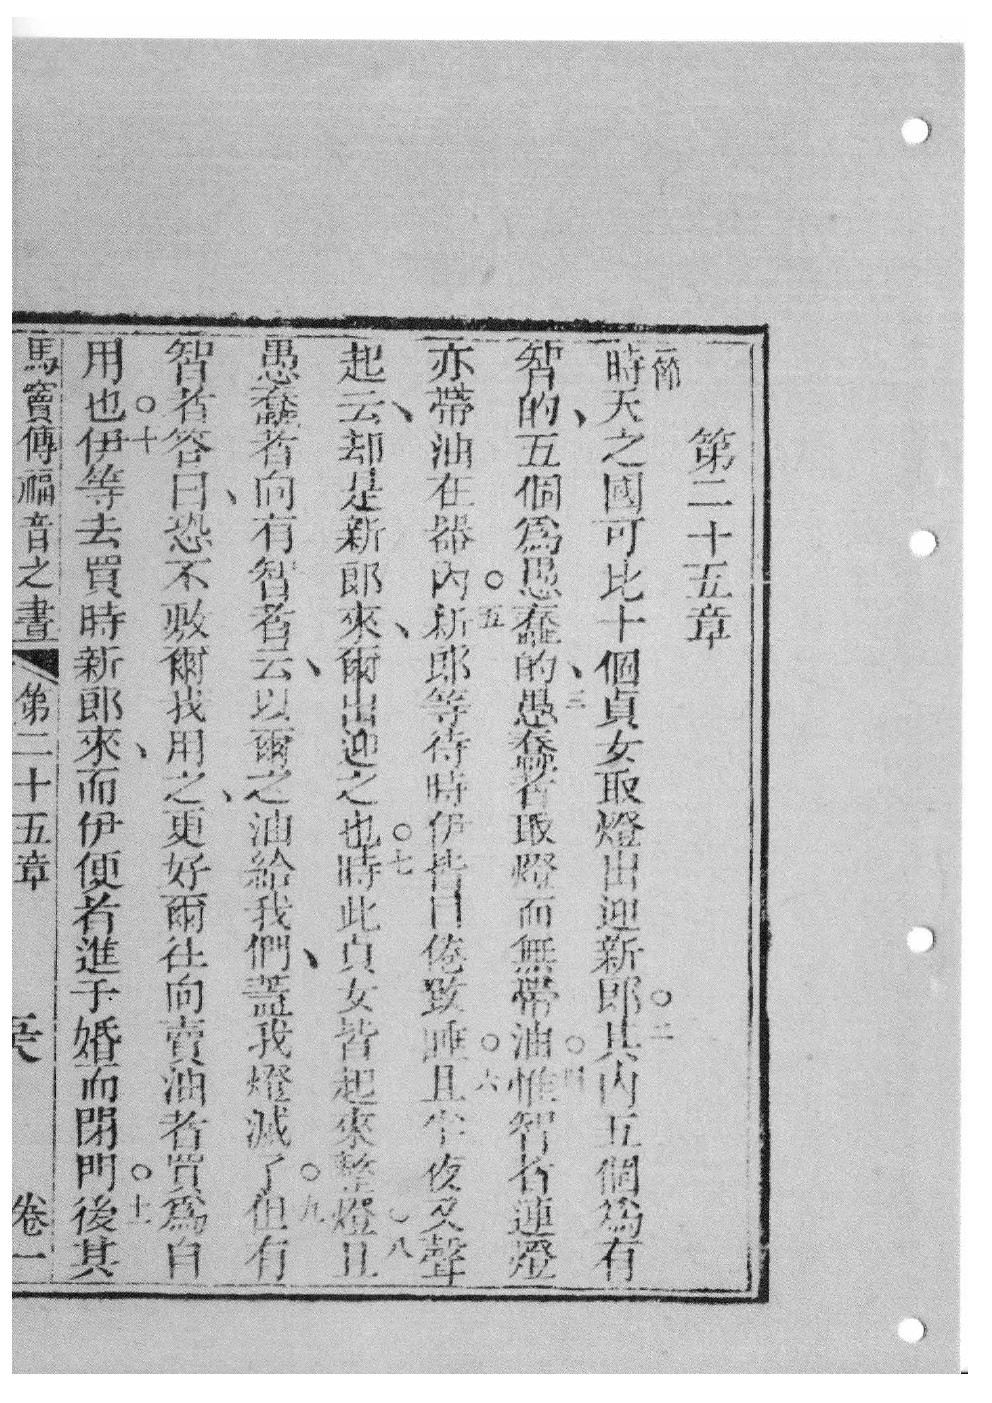 第二十五章
一節時天之國可比十個貞女取燈出迎新郎○二其內五個爲有
智的、五個爲愚蠢的、三愚蠢者取燈而無帶油○四惟智者連燈
亦帶油在器內○五新郎等待時伊皆日倦致睡○六且半夜又聲
起云、却是新郎來、爾出迎之也○七時此貞女皆起來整燈○八且
愚蠢者向有智者云、以爾之油給我們、蓋我燈滅了○九但有
智者答曰、恐不敷爾我用之、更好爾往向賣油者買爲自
用也○十伊等去買時新郎來、而伊便者進于婚而閉門○十一後其
馬竇傳福音之書 第二十五章 卷一